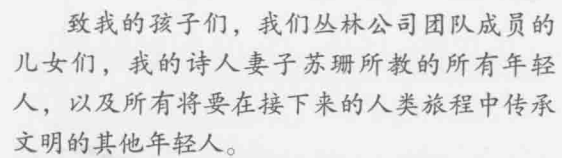 致我的孩子们，我们丛林公司团队成员的
儿女们，我的诗人妻子苏珊所教的所有年轻
人，以及所有将要在接下来的人类旅程中传承
文明的其他年轻人。